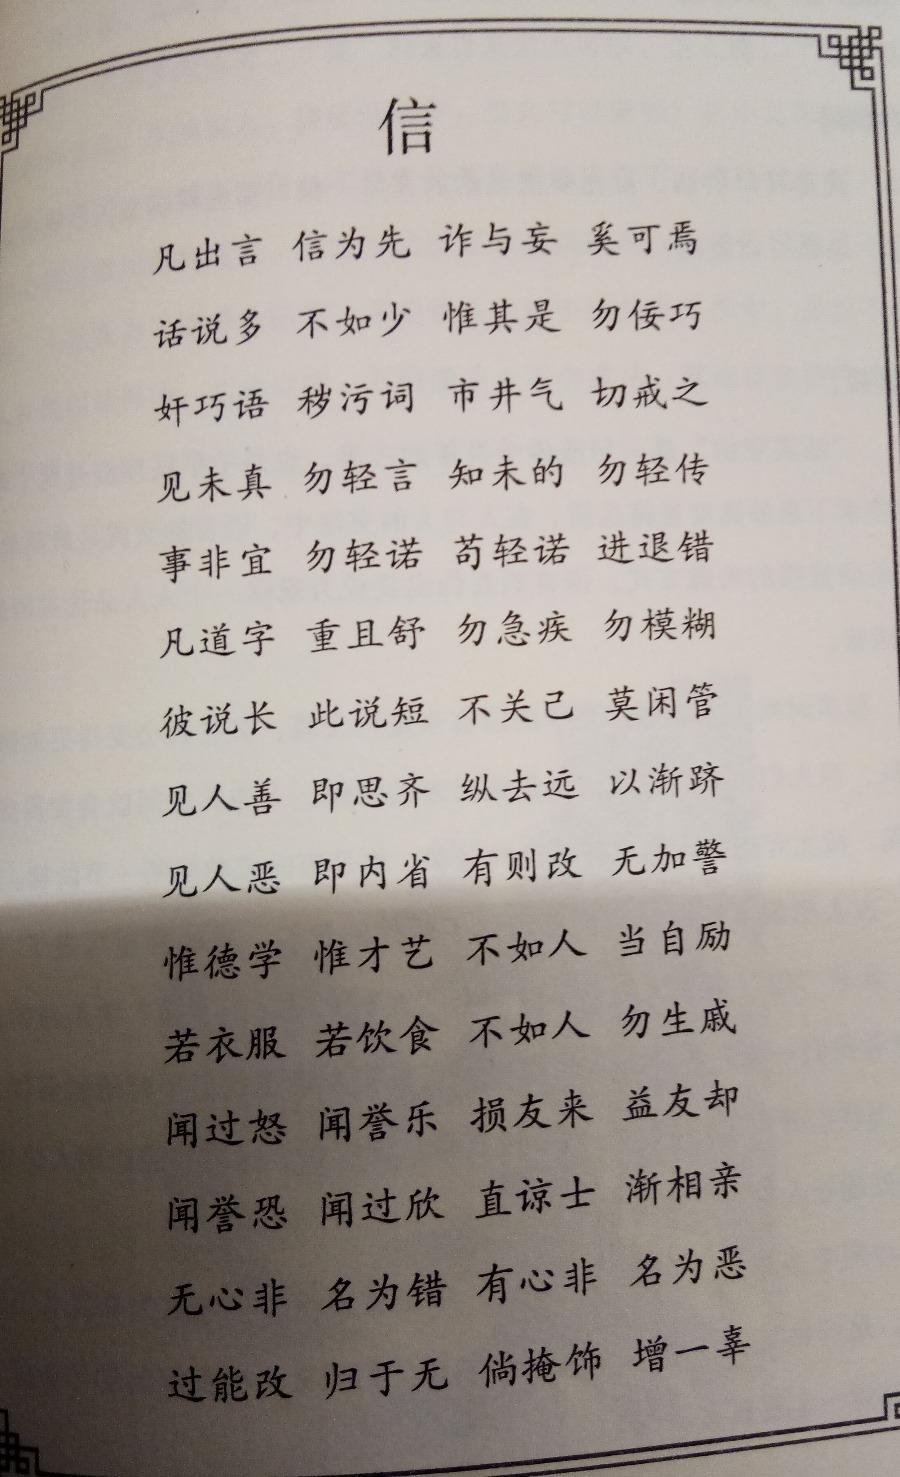 信
凡出言 信为先 诈与妄 奚可焉
话说多 不如少 惟其是 勿佞巧
奸巧语 秽污词 市井气 切戒之
见未真 勿轻言 知未的 勿轻传
事非宜 勿轻诺 苟轻诺 进退错
凡道字 重且舒 勿急疾 勿模糊
彼说长 此说短 不关己 莫闲管
见人善 即思齐 纵去远 以渐跻
见人恶 即内省 有则改 无加警
惟德学 惟才艺 不如人 当自励
若衣服 若饮食 不如人 勿生戚
闻过怒 闻誉乐 损友来 益友却
闻誉恐 闻过欣 直谅士 渐相亲
无心非 名为错 有心非 名为恶
过能改 归于无 倘掩饰 增一辜